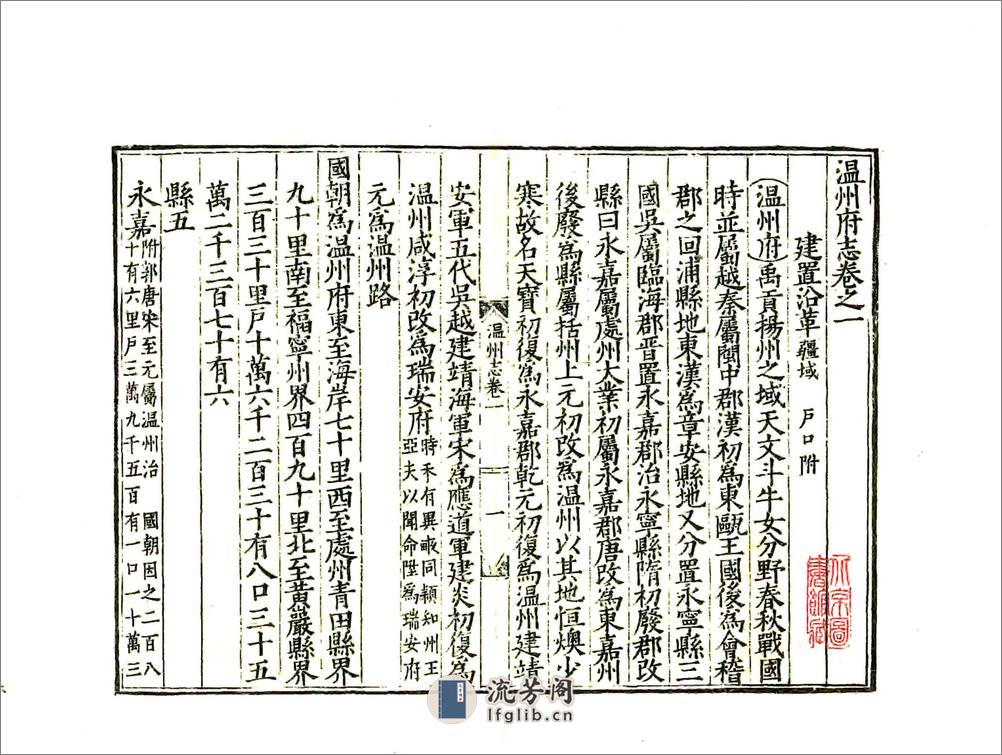 温州府志卷之一
建置沿革 疆域 戶口附
温州府禹貢揚州之域天文斗牛女分野春秋戰國
時並屬越秦屬閩中郡漢初爲東甌王國後爲會稽
郡之回浦縣地東漢爲章安縣地又分置永寧縣三
國吳屬臨海郡晉置永嘉郡治永寧縣隋初廢郡改
縣曰永嘉屬處州大業初屬永嘉郡唐改爲東嘉州
後廢爲縣屬括州上元初改爲温州以其地恒燠少
寒故名天寶初復爲永嘉郡乾元初復爲温州建靖
温州志卷一
一
安軍五代吳越建靖海軍宋爲應道軍建炎初復爲
温州咸淳初改爲瑞安府 時禾有異畝同穎知州王
亞夫以聞命陞爲瑞安府
元爲温州路
國朝爲温州府東至海岸七十里西至處州青田縣界
九十里南至福寧州界四百九十里北至黄巖縣界
三百三十里戶十萬六千二百三十有八口三十五
萬二千三百七十有六
縣五
永嘉 附郭唐宋至元屬温州治 國朝因之二百八
十有六里戶三萬九千五百有一口一十萬三
流芳阁
lfglib.cn